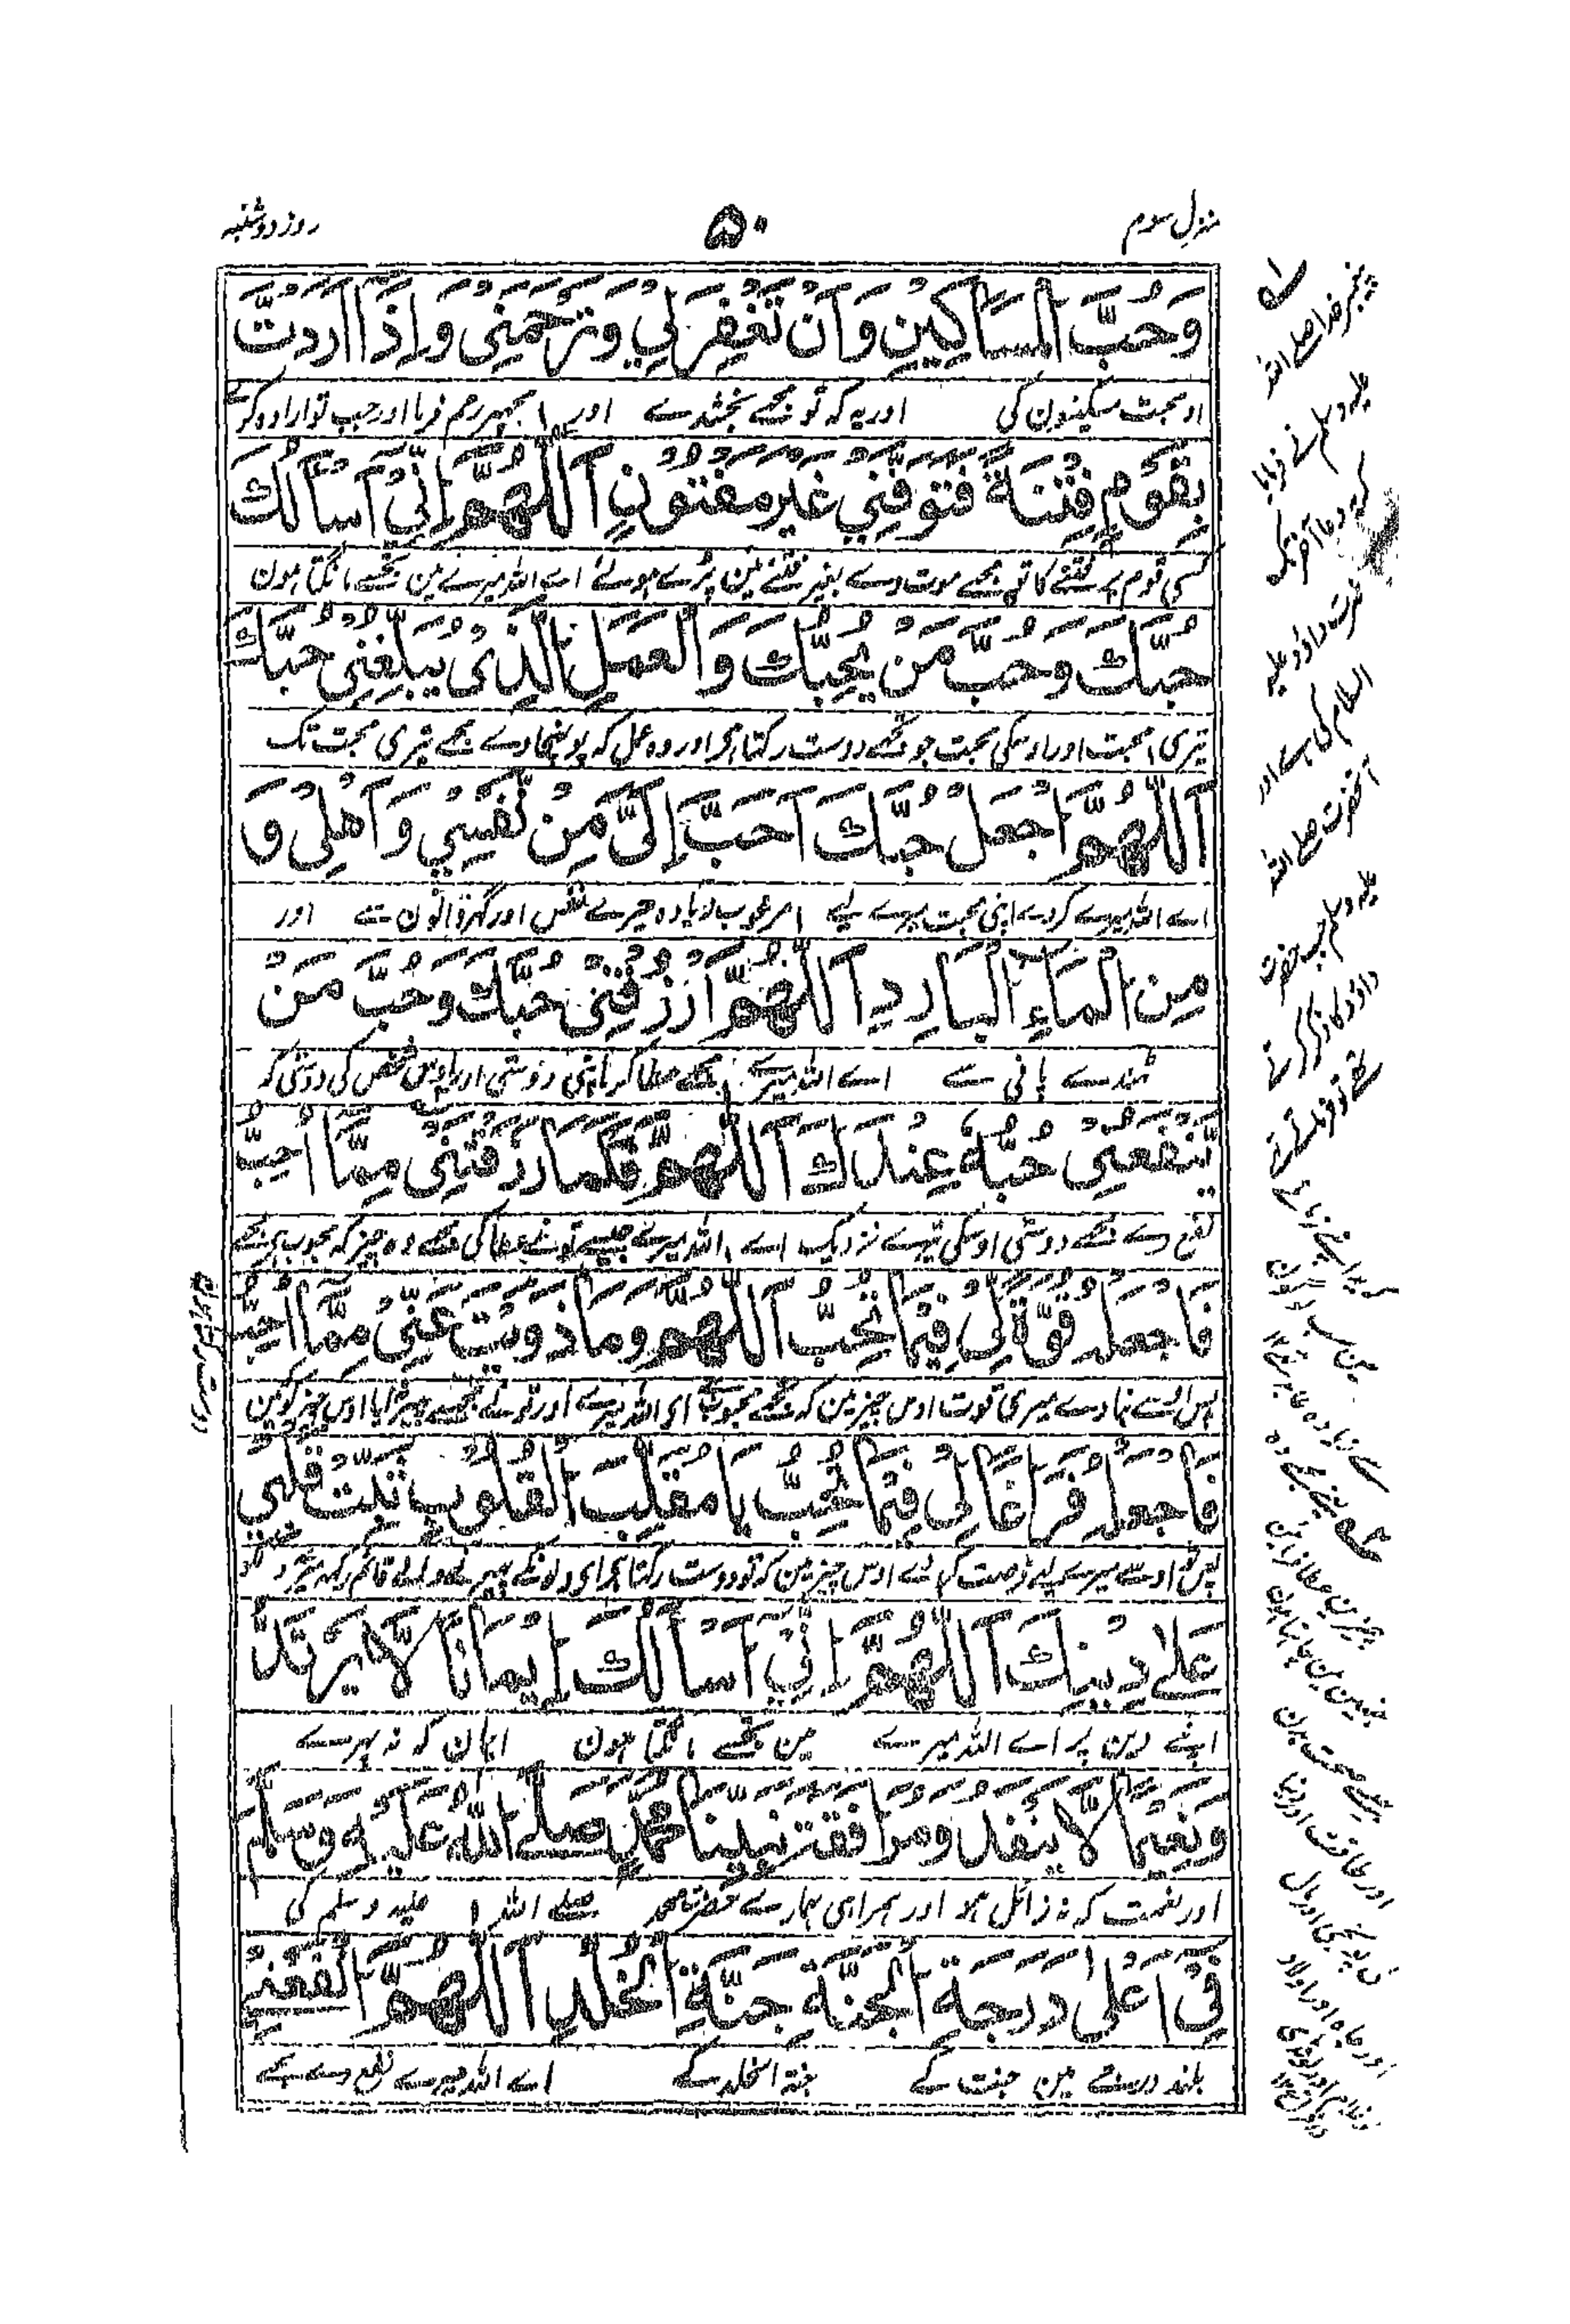 منزل سوم
۵۰
روز دوشنبه
وَحُبَّ الْمَسَاكِيْنِ وَاَنْ تَغْفِرَ لِيْ وَتَرْحَمَنِيْ وَاِذَا اَرَدْتَّ
اور محبت مسکینون کی اور یہ کہ تو مجھے بخشدے اور مجھپر رحم فرما اور جب تو ارادہ کرے
بِقَوْمٍ فِتْنَةً فَتَوَفَّنِيْ غَيْرَ مَفْتُوْنٍ اَللّٰهُمَّ اِنِّيْ اَسْاَلُكَ
کسی قوم پر فتنے کا تو مجھے موت دے بغیر فتنے مین پڑے ہوئے اے اللہ میرے مین تجھسے مانگتا ہون
حُبَّكَ وَحُبَّ مَنْ يُّحِبُّكَ وَالْعَمَلَ الَّذِيْ يُبَلِّغُنِيْ حُبَّكَ
تیری محبت اور اوسکی محبت جو تجھے دوست رکھتا ہے اور وہ عمل کہ پونہچادے مجھے تیری محبت تک
اَللّٰهُمَّ اجْعَلْ حُبَّكَ اَحَبَّ اِلَيَّ مِنْ نَّفْسِيْ وَاَهْلِيْ وَ
اے اللہ میرے کردے اپنی محبت میرے لیے مرغوب زیادہ میرے نفس اور گہر والون سے اور
مِنَ الْمَاءِ الْبَارِدِ اَللّٰهُمَّ ارْزُقْنِيْ حُبَّكَ وَحُبَّ مَنْ
ٹہنڈے پانی سے اے اللہ میرے مجھے عطا کر اپنی دوستی اور اوس شخص کی دوستی کہ
يَّنْفَعُنِيْ حُبُّهٗ عِنْدَكَ اَللّٰهُمَّ فَكَمَا رَزَقْتَنِيْ مِمَّا اُحِبُّ
نفع دے مجھے دوستی اوسکی تیرے نزدیک اے اللہ میرے جیسے تونے عطا کی مجھے وہ چیز کہ محبوب ہے مجھے
فَاجْعَلْهُ قُوَّةً لِّيْ فِيْمَا تُحِبُّ اَللّٰهُمَّ وَمَا زَوَيْتَ عَنِّيْ مِمَّا اُحِبُّ
پس اسے بنا دے میری قوت اوس چیز مین کہ تجھے محبوب ہے ای اللہ میرے اور تونے مجھسے اوس چیز کو مین
فَاجْعَلْهُ فَرَاغًا لِّيْ فِيْمَا تُحِبُّ يَا مُقَلِّبَ الْقُلُوْبِ ثَبِّتْ قَلْبِيْ
پس تو اوسے میرے لیے اوس چیز مین کہ تو دوست رکھتا ہے ای دلونکے پہیرنے والے قائم رکھ میرے دل کو
عَلٰى دِيْنِكَ اَللّٰهُمَّ اِنِّيْ اَسْاَلُكَ اِيْمَانًا لَّا يَرْتَدُّ
اپنے دین پر اے اللہ میرے مین تجھسے مانگتا ہون ایمان کہ نہ پہرے
وَنَعِيْمًا لَّا يَنْفَدُ وَمُرَافَقَةَ نَبِيِّنَا مُحَمَّدٍ صَلَّى اللّٰهُ عَلَيْهِ وَسَلَّمَ
اور نعمت کہ نہ زائل ہو اور ہمراہی ہمارے حضرت محمد صلے اللہ علیہ وسلم کی
فِيْ اَعْلٰى دَرَجَةِ الْجَنَّةِ جَنَّةِ الْخُلْدِ اَللّٰهُمَّ انْفَعْنِيْ
بلند درجے مین جنت کے جنۃ الخلد کے اے اللہ میرے نفع دے مجھے
پیغمبر خدا صلے اللہ
علیہ وسلم نے فرمایا
کہ یہ دعا آخر تک
حضرت داؤد علیہ
السلام کی ہے اور
آنحضرت صلے اللہ
علیہ وسلم جب حضرت
داؤد کا ذکر کرتے
تھے تو فرماتے تھے